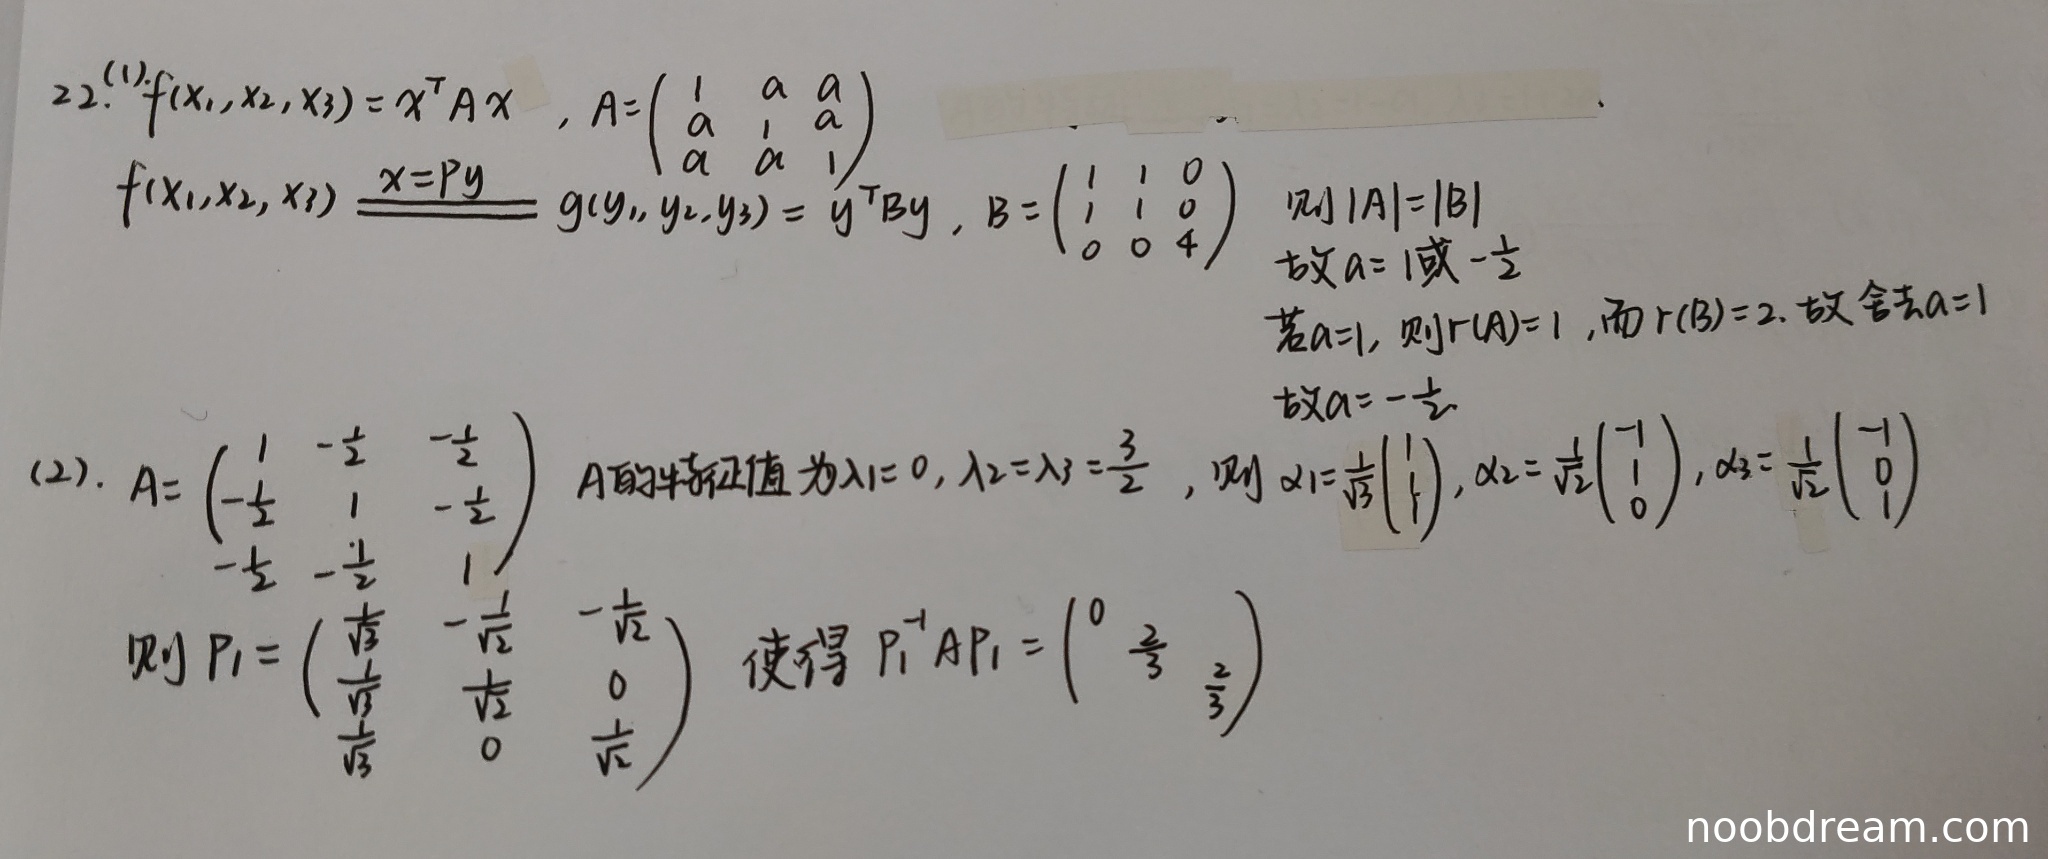 22.(1). f(x₁,x₂,x₃)=xᵀAx , A=(1 a a; a 1 a; a a 1)
f(x₁,x₂,x₃) x=Py g(y₁,y₂,y₃)=yᵀBy , B=(1 1 0; 1 1 0; 0 0 4) 则|A|=|B|
故a=1或-1/2
若a=1, 则r(A)=1 ,而r(B)=2. 故舍去a=1
故a=-1/2
(2). A=(1 -1/2 -1/2; -1/2 1 -1/2; -1/2 -1/2 1) A的特征值为λ₁=0, λ₂=λ₃=3/2 , 则α₁=1/√3(1; 1; 1), α₂=1/√2(-1; 1; 0), α₃=1/√2(-1; 0; 1)
则P₁=(1/√3 -1/√2 -1/√2; 1/√3 1/√2 0; 1/√3 0 1/√2) 使得P₁⁻¹AP₁=(0 2/3 2/3)
noobdream.com